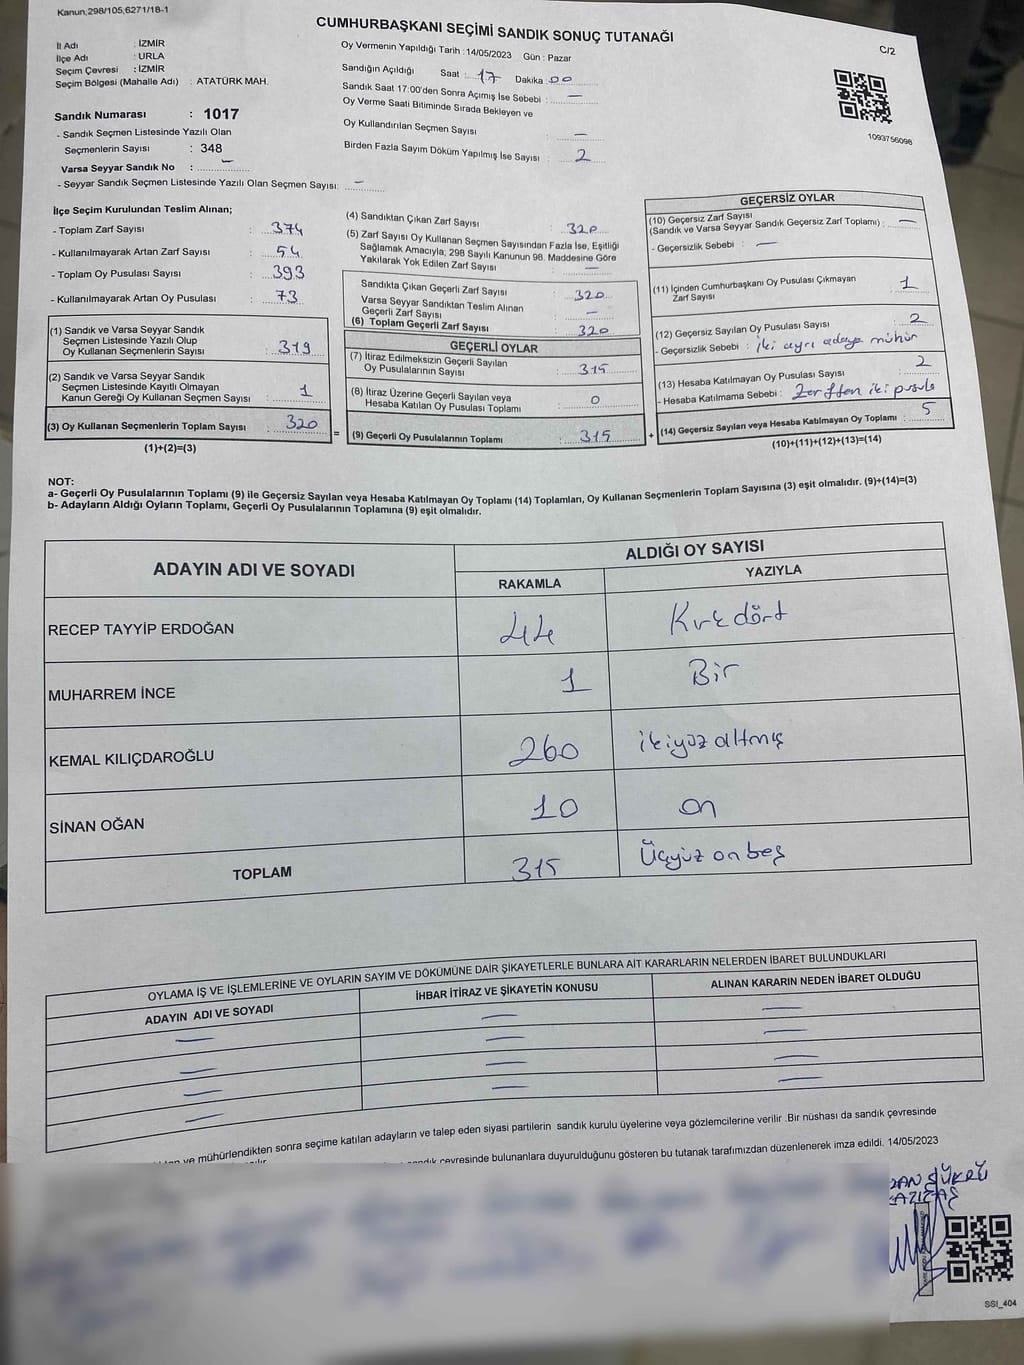 Kanun,298/105,6271/18-1
CUMHURBAŞKANI SEÇİMİ SANDIK SONUÇ TUTANAĞI
C/2
İl Adı : İZMİR
İlçe Adı : URLA
Seçim Çevresi : İZMİR
Seçim Bölgesi (Mahalle Adı) : ATATÜRK MAH.
Sandık Numarası : 1017
- Sandık Seçmen Listesinde Yazılı Olan
Seçmenlerin Sayısı : 348
Varsa Seyyar Sandık No : —
- Seyyar Sandık Seçmen Listesinde Yazılı Olan Seçmen Sayısı: —
Oy Vermenin Yapıldığı Tarih : 14/05/2023 Gün : Pazar
Sandığın Açıldığı Saat : 17 Dakika : 00
Sandık Saat 17:00'den Sonra Açımış İse Sebebi : —
Oy Verme Saati Bitiminde Sırada Bekleyen ve
Oy Kullandırılan Seçmen Sayısı : —
Birden Fazla Sayım Döküm Yapılmış İse Sayısı : 2
1093756096
İlçe Seçim Kurulundan Teslim Alınan;
- Toplam Zarf Sayısı : 374
- Kullanılmayarak Artan Zarf Sayısı : 54
- Toplam Oy Pusulası Sayısı : 393
- Kullanılmayarak Artan Oy Pusulası : 73
(1) Sandık ve Varsa Seyyar Sandık
Seçmen Listesinde Yazılı Olup
Oy Kullanan Seçmenlerin Sayısı : 319
(2) Sandık ve Varsa Seyyar Sandık
Seçmen Listesinde Kayıtlı Olmayan
Kanun Gereği Oy Kullanan Seçmen Sayısı : 1
(3) Oy Kullanan Seçmenlerin Toplam Sayısı : 320
(1)+(2)=(3)
(4) Sandıktan Çıkan Zarf Sayısı : 320
(5) Zarf Sayısı Oy Kullanan Seçmen Sayısından Fazla İse, Eşitliği
Sağlamak Amacıyla; 298 Sayılı Kanunun 98. Maddesine Göre
Yakılarak Yok Edilen Zarf Sayısı : —
Sandıkta Çıkan Geçerli Zarf Sayısı : 320
Varsa Seyyar Sandıktan Teslim Alınan
Geçerli Zarf Sayısı : —
(6) Toplam Geçerli Zarf Sayısı : 320
GEÇERLİ OYLAR
(7) İtiraz Edilmeksizin Geçerli Sayılan
Oy Pusulalarının Sayısı : 315
(8) İtiraz Üzerine Geçerli Sayılan veya
Hesaba Katılan Oy Pusulası Toplamı : 0
= (9) Geçerli Oy Pusulalarının Toplamı : 315 +
GEÇERSİZ OYLAR
(10) Geçersiz Zarf Sayısı
(Sandık ve Varsa Seyyar Sandık Geçersiz Zarf Toplamı) : —
- Geçersizlik Sebebi : —
(11) İçinden Cumhurbaşkanı Oy Pusulası Çıkmayan
Zarf Sayısı : 1
(12) Geçersiz Sayılan Oy Pusulası Sayısı : 2
- Geçersizlik Sebebi : iki ayrı adaya mühür
(13) Hesaba Katılmayan Oy Pusulası Sayısı : 2
- Hesaba Katılmama Sebebi : Zarftan iki pusula
(14) Geçersiz Sayılan veya Hesaba Katılmayan Oy Toplamı : 5
(10)+(11)+(12)+(13)=(14)
NOT:
a- Geçerli Oy Pusulalarının Toplamı (9) ile Geçersiz Sayılan veya Hesaba Katılmayan Oy Toplamı (14) Toplamları, Oy Kullanan Seçmenlerin Toplam Sayısına (3) eşit olmalıdır. (9)+(14)=(3)
b- Adayların Aldığı Oyların Toplamı, Geçerli Oy Pusulalarının Toplamına (9) eşit olmalıdır.
ADAYIN ADI VE SOYADI
ALDIĞI OY SAYISI
RAKAMLA YAZIYLA
RECEP TAYYİP ERDOĞAN 44 Kırkdört
MUHARREM İNCE 1 Bir
KEMAL KILIÇDAROĞLU 260 ikiyüz altmış
SİNAN OĞAN 10 on
TOPLAM 315 Üçyüz onbeş
OYLAMA İŞ VE İŞLEMLERİNE VE OYLARIN SAYIM VE DÖKÜMÜNE DAİR ŞİKAYETLERLE BUNLARA AİT KARARLARIN NELERDEN İBARET BULUNDUKLARI
ADAYIN ADI VE SOYADI İHBAR İTİRAZ VE ŞİKAYETİN KONUSU ALINAN KARARIN NEDEN İBARET OLDUĞU
— — —
— — —
— — —
— — —
ve mühürlendikten sonra seçime katılan adayların ve talep eden siyasi partilerin sandık kurulu üyelerine veya gözlemcilerine verilir .Bir nüshası da sandık çevresinde
çevresinde bulunanlara duyurulduğunu gösteren bu tutanak tarafımızdan düzenlenerek imza edildi. 14/05/2023
SSI_404